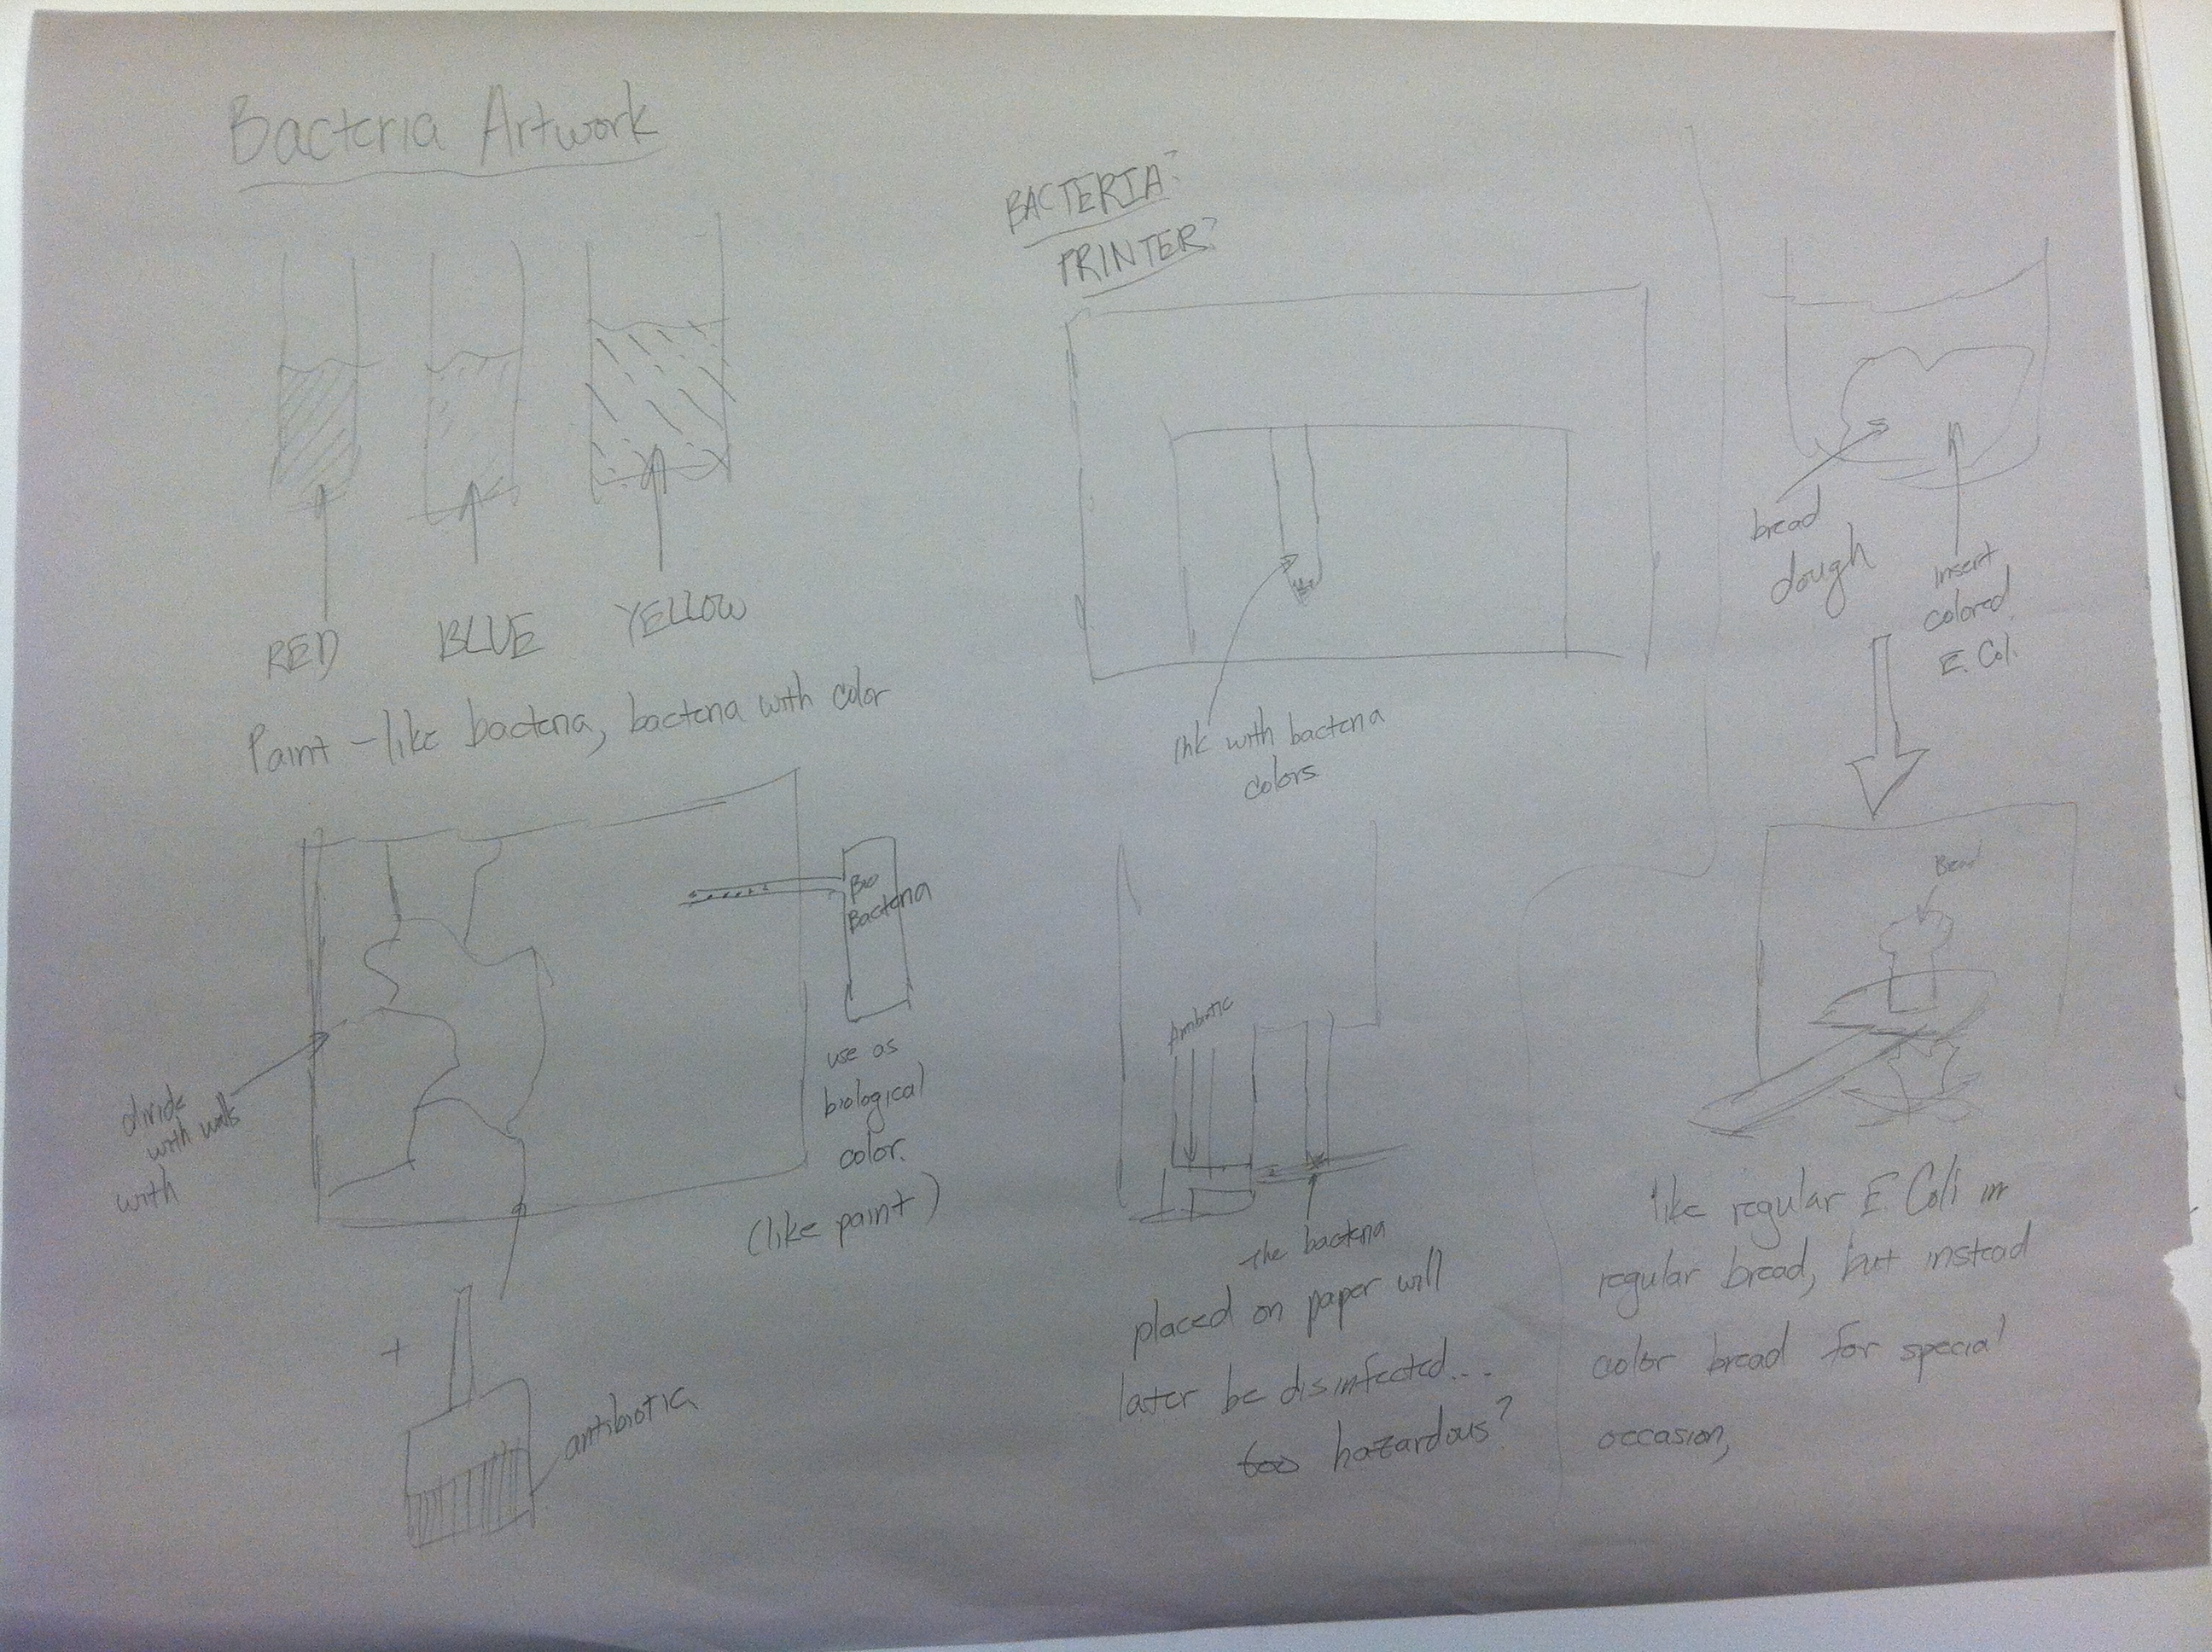 Bacteria Artwork
RED
BLUE
YELLOW
Paint-like bacteria, bacteria with color
divide
with walls
with
Bio
Bacteria
use as
biological
color.
(like paint)
+
antibiotic
BACTERIA?
PRINTER?
Ink with bacteria
colors
The bacteria
placed on paper will
later be disinfected...
too hazardous?
bread
dough
insert
colored
E. Coli
Bread
like regular E Coli in
regular bread, but instead
color bread for special
occasion,